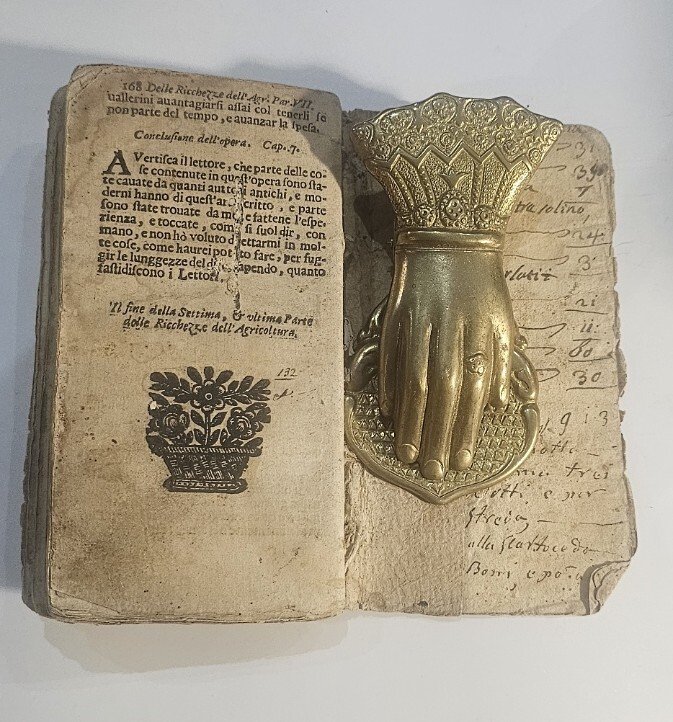 168 Delle Ricchezze dell'Agr. Par. VII.
uallerini auantagiarsi assai col tenerli se
non parte del tempo, e auanzar la spesa.
Conclusione dell'opera. Cap. 7.
AVertisca il lettore, che parte delle co-
se contenute in quest'opera sono sta-
te cauate da quanti autt ri antichi, e mo-
derni hanno di quest'ar eritto, e parte
sono state trouate da m e fattene l'espe-
rienza, e toccate, com si suol dir, con
mano, e non hò voluto d ettarmi in mol-
te cose, come haurei pot to fare, per fug-
gir le lunggezze del d apendo, quanto
fastidiscono i Lettori.
Il fine della Settima, & vltima Parte
delle Ricchezze dell'Agricoltura.
132
3
7
24
3
21
11
60
30
9 1 3
tre
otti e per
alla
Boni e